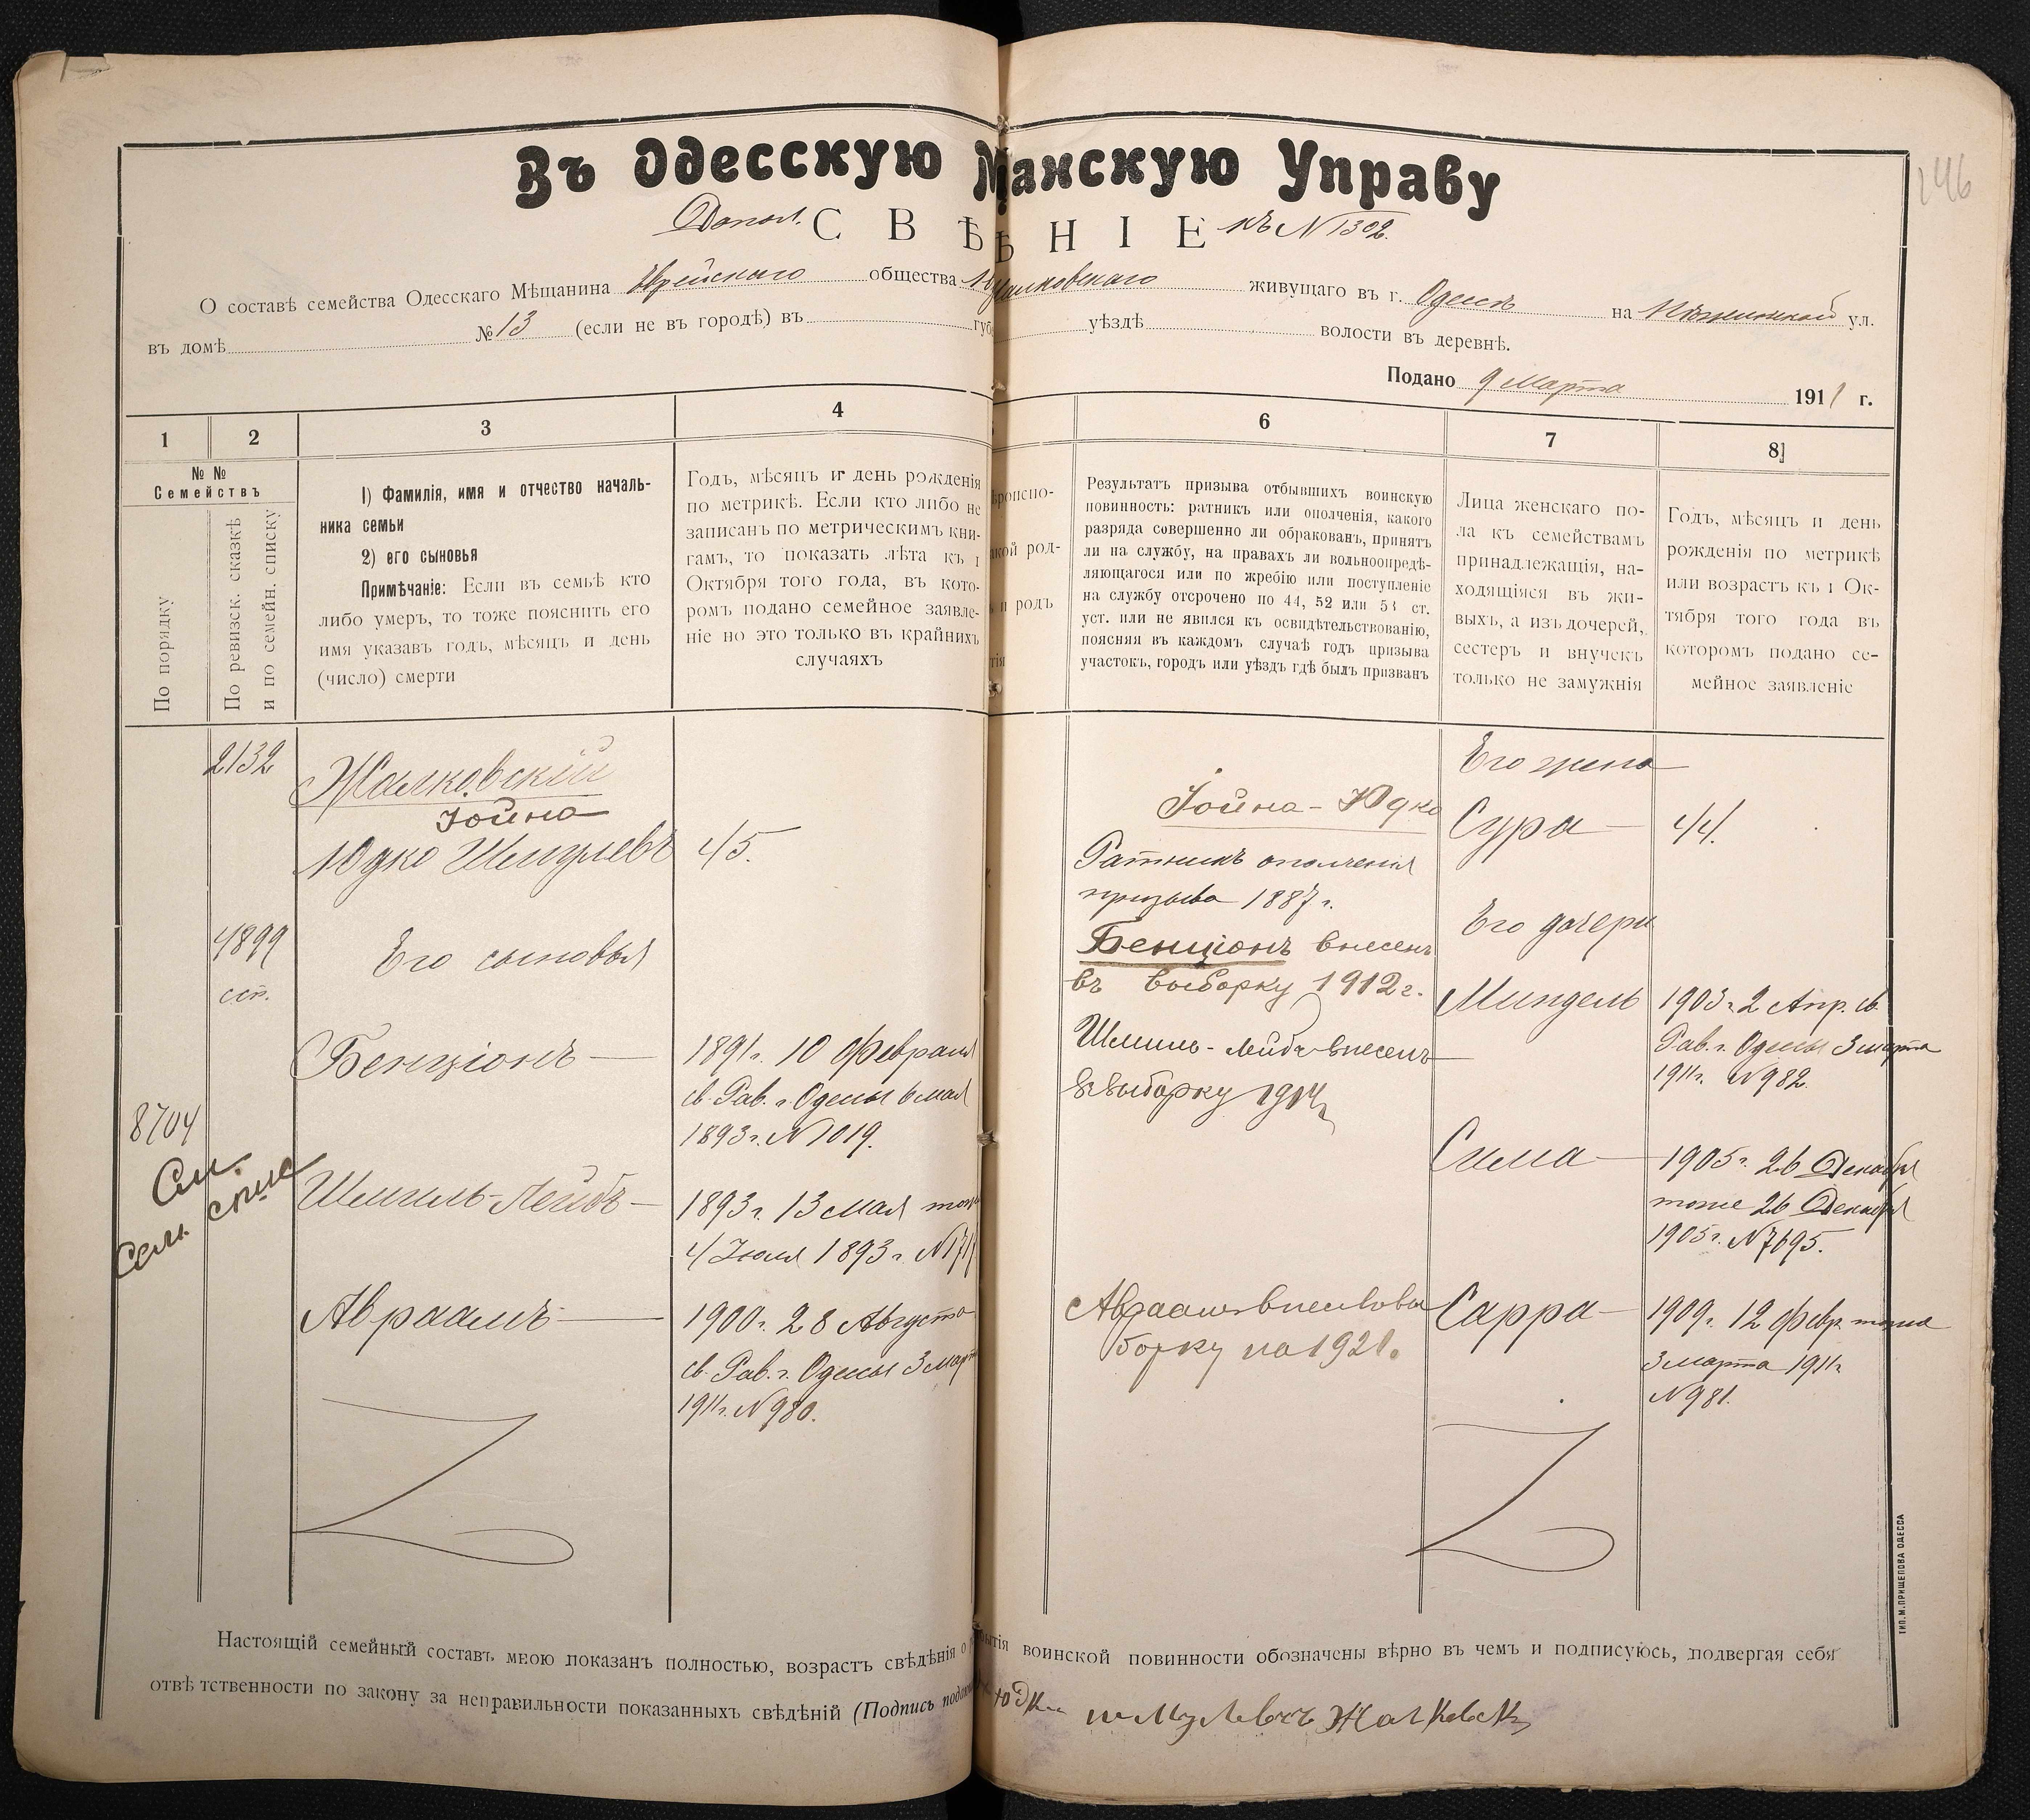 246
Въ Одесскую М щанскую Управу
Допол. СВѢ ѢНІЕ къ N 1302.
О составѣ семейства Одесскаго Мѣщанина Еврейскаго общества Жалковскаго живущаго въ г. Одессѣ на ул.
въ домѣ № 13 (если не въ городѣ) въ губ уѣздѣ волости въ деревнѣ.
Подано 9 Марта 1911 г.
1 2 3 4 6 7 8
№ №
Семействъ
По порядку
По ревизск. сказкѣ
и по семейн. списку
1) Фамилія, имя и отчество началь-
ника семьи
2) его сыновья
Примѣчаніе: Если въ семьѣ кто
либо умеръ, то тоже пояснить его
имя указавъ годъ, мѣсяцъ и день
(число) смерти
Годъ, мѣсяцъ и день рожденія
по метрикѣ. Если кто либо не
записанъ по метрическимъ кни-
гамъ, то показать лѣта къ 1
Октября того года, въ кото-
ромъ подано семейное заявле-
ніе но это только въ крайнихъ
случаяхъ
ѣроиспо-
акой род-
ь и родъ
тія
Результатъ призыва отбывшихъ воинскую
повинность: ратникъ или ополченія, какого
разряда совершенно ли обракованъ, принятъ
ли на службу, на правахъ ли вольноопредѣ-
ляющагося или по жребію или поступленіе
на службу отсрочено по 44, 52 или 53 ст.
уст. или не явился къ освидѣтельствованію,
поясняя въ каждомъ случаѣ годъ призыва
участокъ, городъ или уѣздъ гдѣ былъ призванъ
Лица женскаго по-
ла къ семействамъ
принадлежащія, на-
ходящіяся въ жи-
выхъ, а изъ дочерей,
сестеръ и внучекъ
только не замужнія
Годъ, мѣсяцъ и день
рожденія по метрикѣ
или возрастъ къ 1 Ок-
тября того года въ
которомъ подано се-
мейное заявленіе
2132
4899
сп.
8704
См.
Сем. списк
Жалковскій
Іойна
Юдко Шмулевъ 45.
Его сыновья
Бенціонъ — 1891 г. 10 Февраля
св. Рав. г. Одессы 6 мая
1893 г. N 1019.
Шмиль-Лейбъ — 1893 г. 13 мая тоже
4 Іюля 1893 г.
Авраамъ — 1900 г. 28 Августа
св. Рав. г. Одессы 3 март
1911 г. N 980.
Іойна-Юдко
Ратникъ ополченія
призыва 1887 г.
Бенціонъ внесенъ
въ выборку 1912 г.
Шмиль-Лейба внесенъ
въ выборку 1914 г.
Авраамъ внесевъ вы
борку на 1921.
Его жена
Сура — 44.
Его дочери
Миндель 1903 г. 2 Апр. св.
Рав. г. Одессы 3 марта
1911 г. N 982.
Сима — 1905 г. 26 Декабря
тоже 26 Декабря
1905 г. N 7695.
Сарра — 1909 г. 12 Февр. тоже
3 марта 1911 г.
N 981.
Настоящій семейный составъ мною показанъ полностью, возрастъ свѣдѣнія о бытія воинской повинности обозначены вѣрно въ чемъ и подписуюсь, подвергая себя
отвѣтственности по закону за неправильности показанныхъ свѣдѣній (Подпись подаю Юдко Шмулевичъ Жалковск
ТИП. М. ПРИЩЕПОВА ОДЕССА